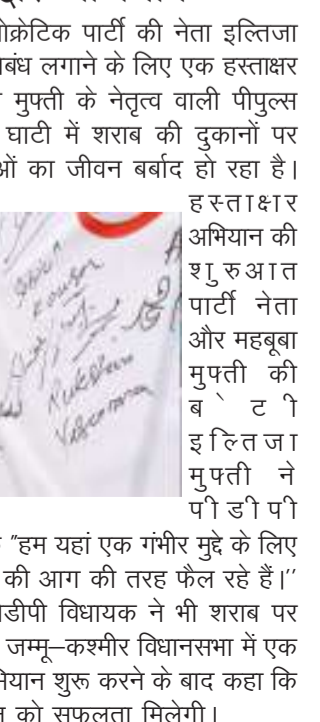 ोक्रेटिक पार्टी की नेता इल्तिजा
बंध लगाने के लिए एक हस्ताक्षर
मुफ्ती के नेतृत्व वाली पीपुल्स
घाटी में शराब की दुकानों पर
ओं का जीवन बर्बाद हो रहा है।
हस्ताक्षार
अभियान की
शुरुआत
पार्टी नेता
और महबूबा
मुफ्ती की
बेटी
इल्तिजा
मुफ्ती ने
पीडीपी
"हम यहां एक गंभीर मुद्दे के लिए
की आग की तरह फैल रहे हैं।''
डीपी विधायक ने भी शराब पर
जम्मू–कश्मीर विधानसभा में एक
ियान शुरू करने के बाद कहा कि
को सफलता मिलेगी।
Rukhsar